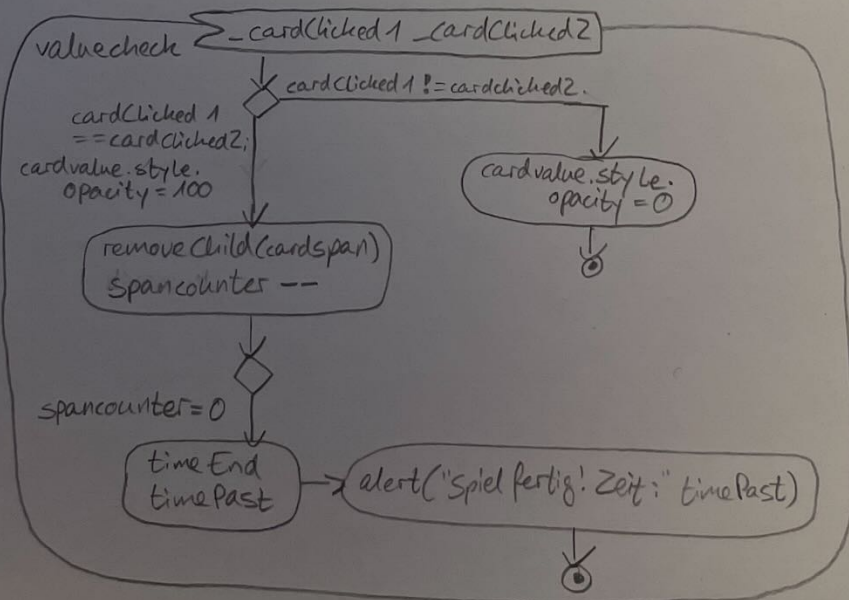 valuecheck
_cardClicked1 _cardClicked2
cardClicked1 != cardclicked2.
cardClicked 1
==cardClicked2;
cardvalue.style.
opacity=100
cardvalue.style.
opacity=0
removeChild(cardspan)
spancounter --
spancounter=0
timeEnd
timePast
alert("Spiel fertig! Zeit:" timePast)